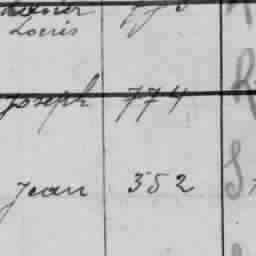 Louis
Joseph 774 R
Jean 352 S